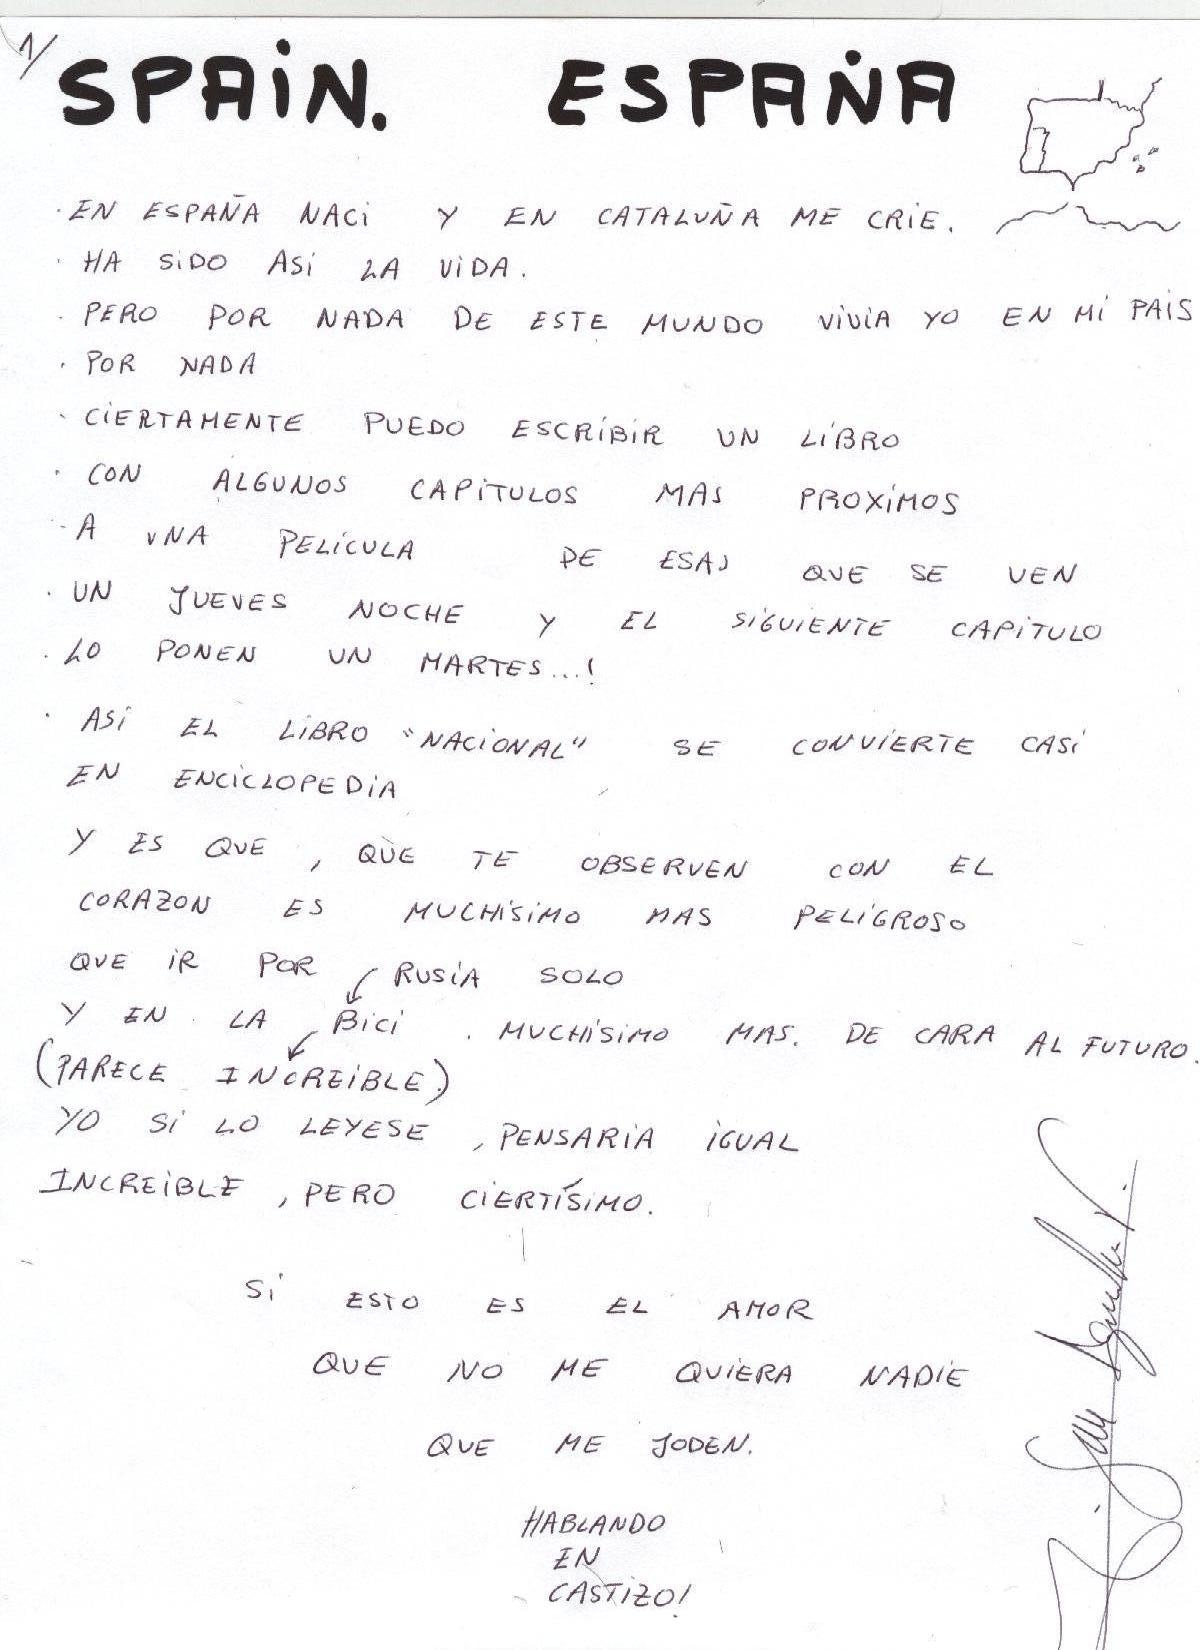 1/
SPAIN. ESPAÑA
· EN ESPAÑA NACI Y EN CATALUÑA ME CRIE.
· HA SIDO ASI LA VIDA.
· PERO POR NADA DE ESTE MUNDO VIVIA YO EN MI PAIS
· POR NADA
· CIERTAMENTE PUEDO ESCRIBIR UN LIBRO
· CON ALGUNOS CAPITULOS MAS PROXIMOS
· A UNA PELICULA DE ESAS QUE SE VEN
· UN JUEVES NOCHE Y EL SIGUIENTE CAPITULO
· LO PONEN UN MARTES...!
· ASI EL LIBRO "NACIONAL" SE CONVIERTE CASI
EN ENCICLOPEDIA
Y ES QUE, QUE TE OBSERVEN CON EL
CORAZON ES MUCHISIMO MAS PELIGROSO
QUE IR POR RUSIA SOLO
Y EN LA BICI. MUCHISIMO MAS. DE CARA AL FUTURO.
(PARECE INCREIBLE)
YO SI LO LEYESE, PENSARIA IGUAL
INCREIBLE, PERO CIERTÍSIMO.
SI ESTO ES EL AMOR
QUE NO ME QUIERA NADIE
QUE ME JODEN.
HABLANDO
EN
CASTIZO!